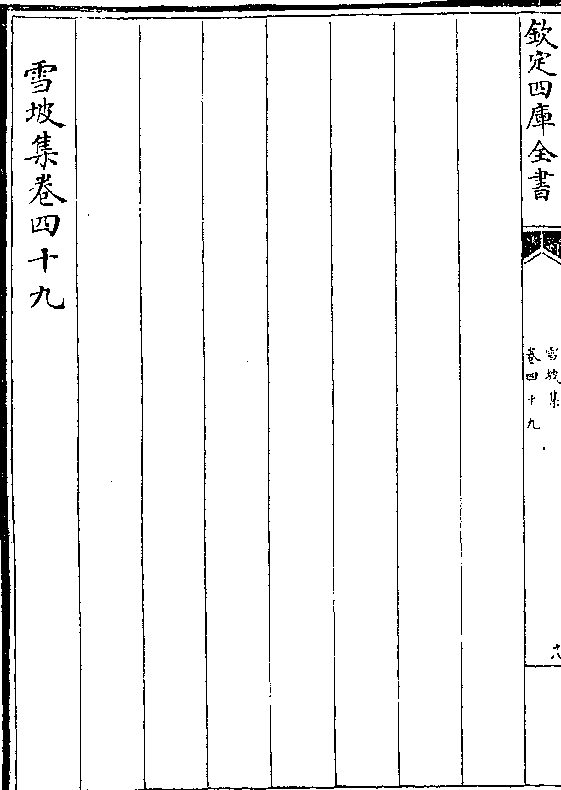 欽定四庫全書
雪坡集
卷四十九
雪坡集卷四十九